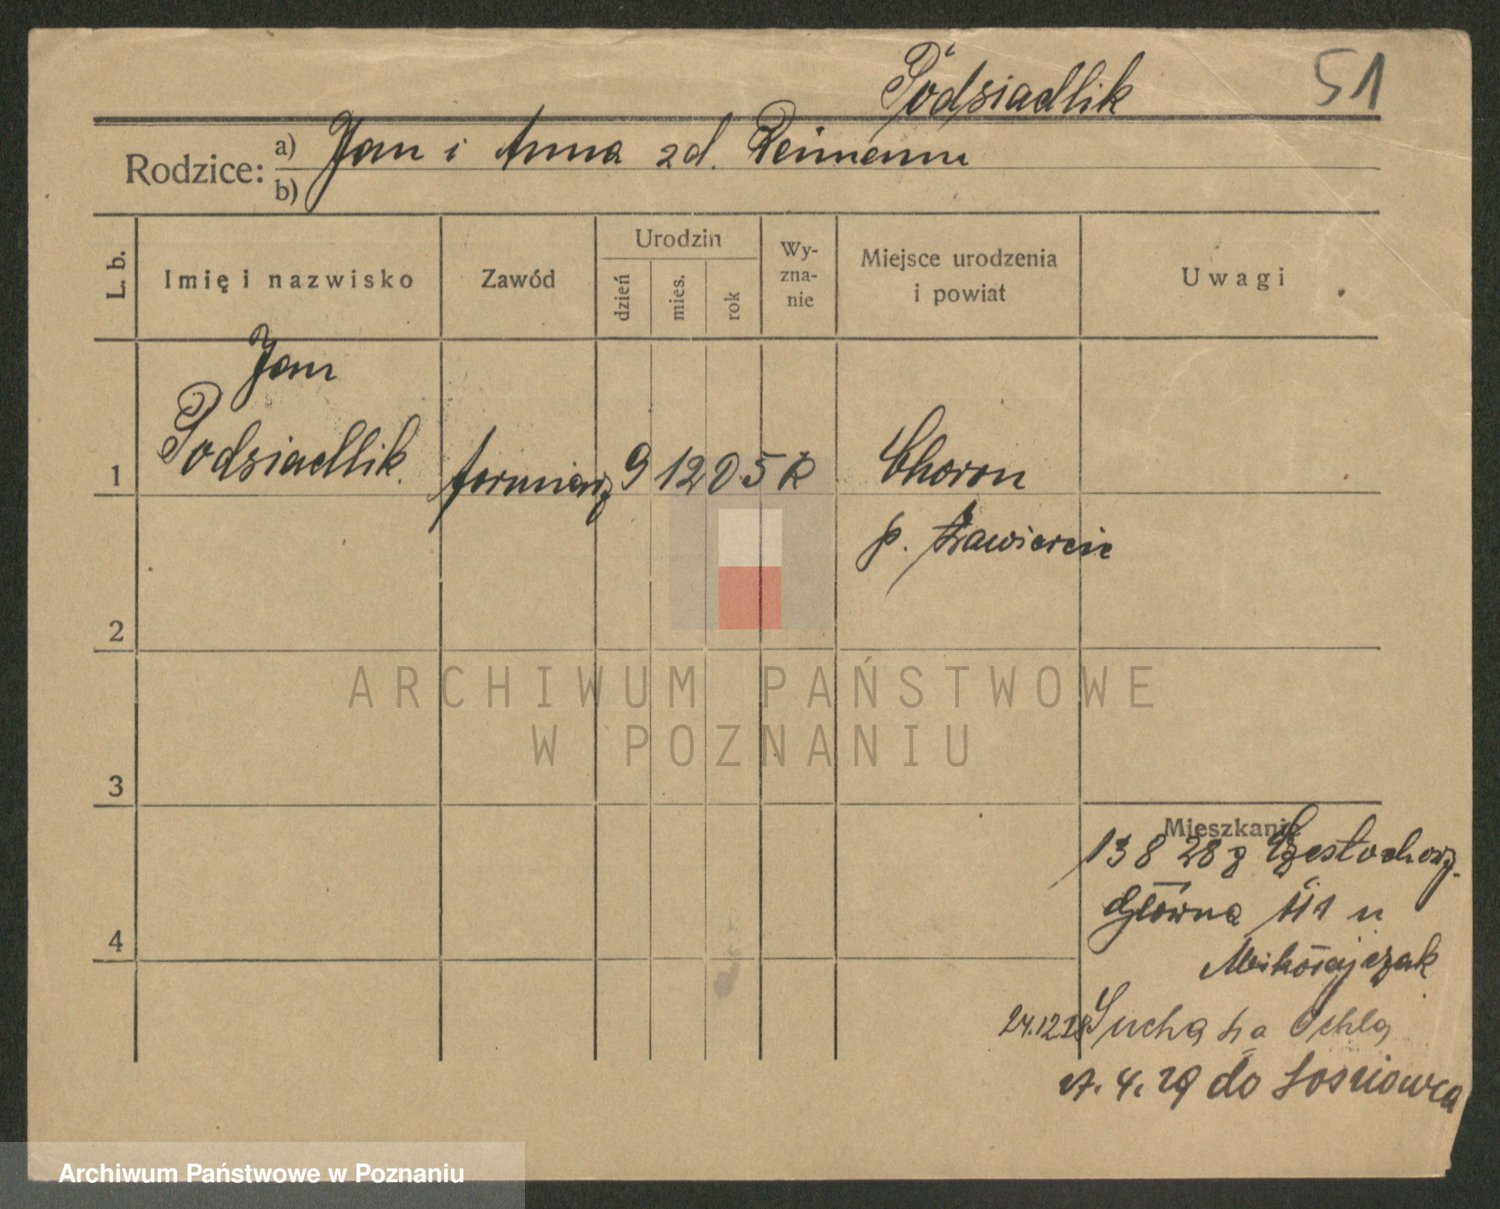 Podsiadlik 51
Rodzice: a) Jan i Anna zd. Reimann
b)
L. b. Imię i nazwisko Zawód Urodzin dzień mies. rok Wy-zna-nie Miejsce urodzenia i powiat Uwagi
Jan
1 Podsiadlik formierz 9 12 05 R Choron
p. Zawiercie
2
ARCHIWUM PAŃSTWOWE
W POZNANIU
3
Mieszkanie
13 8 28 z Częstochowy.
4 Główna 111 u
Mikołajczak
24.12.28 Sucha 4a Ochla
4. 29 do Sosnowca
Archiwum Państwowe w Poznaniu